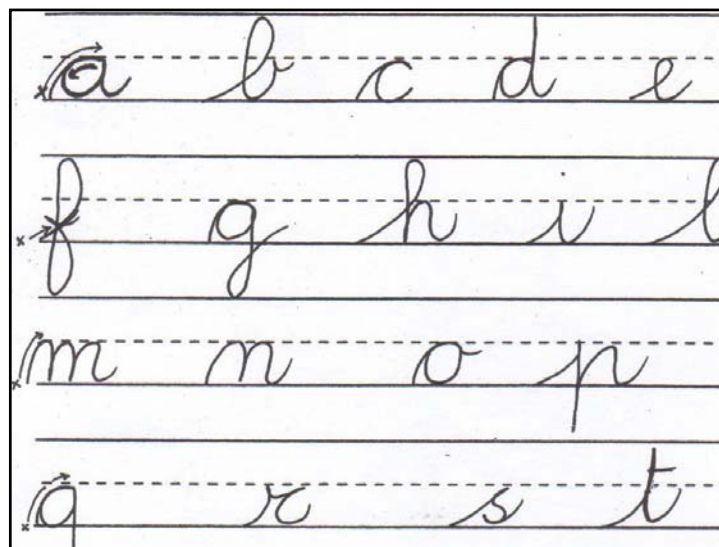 a b c d e
f g h i l
m n o p
q r s t